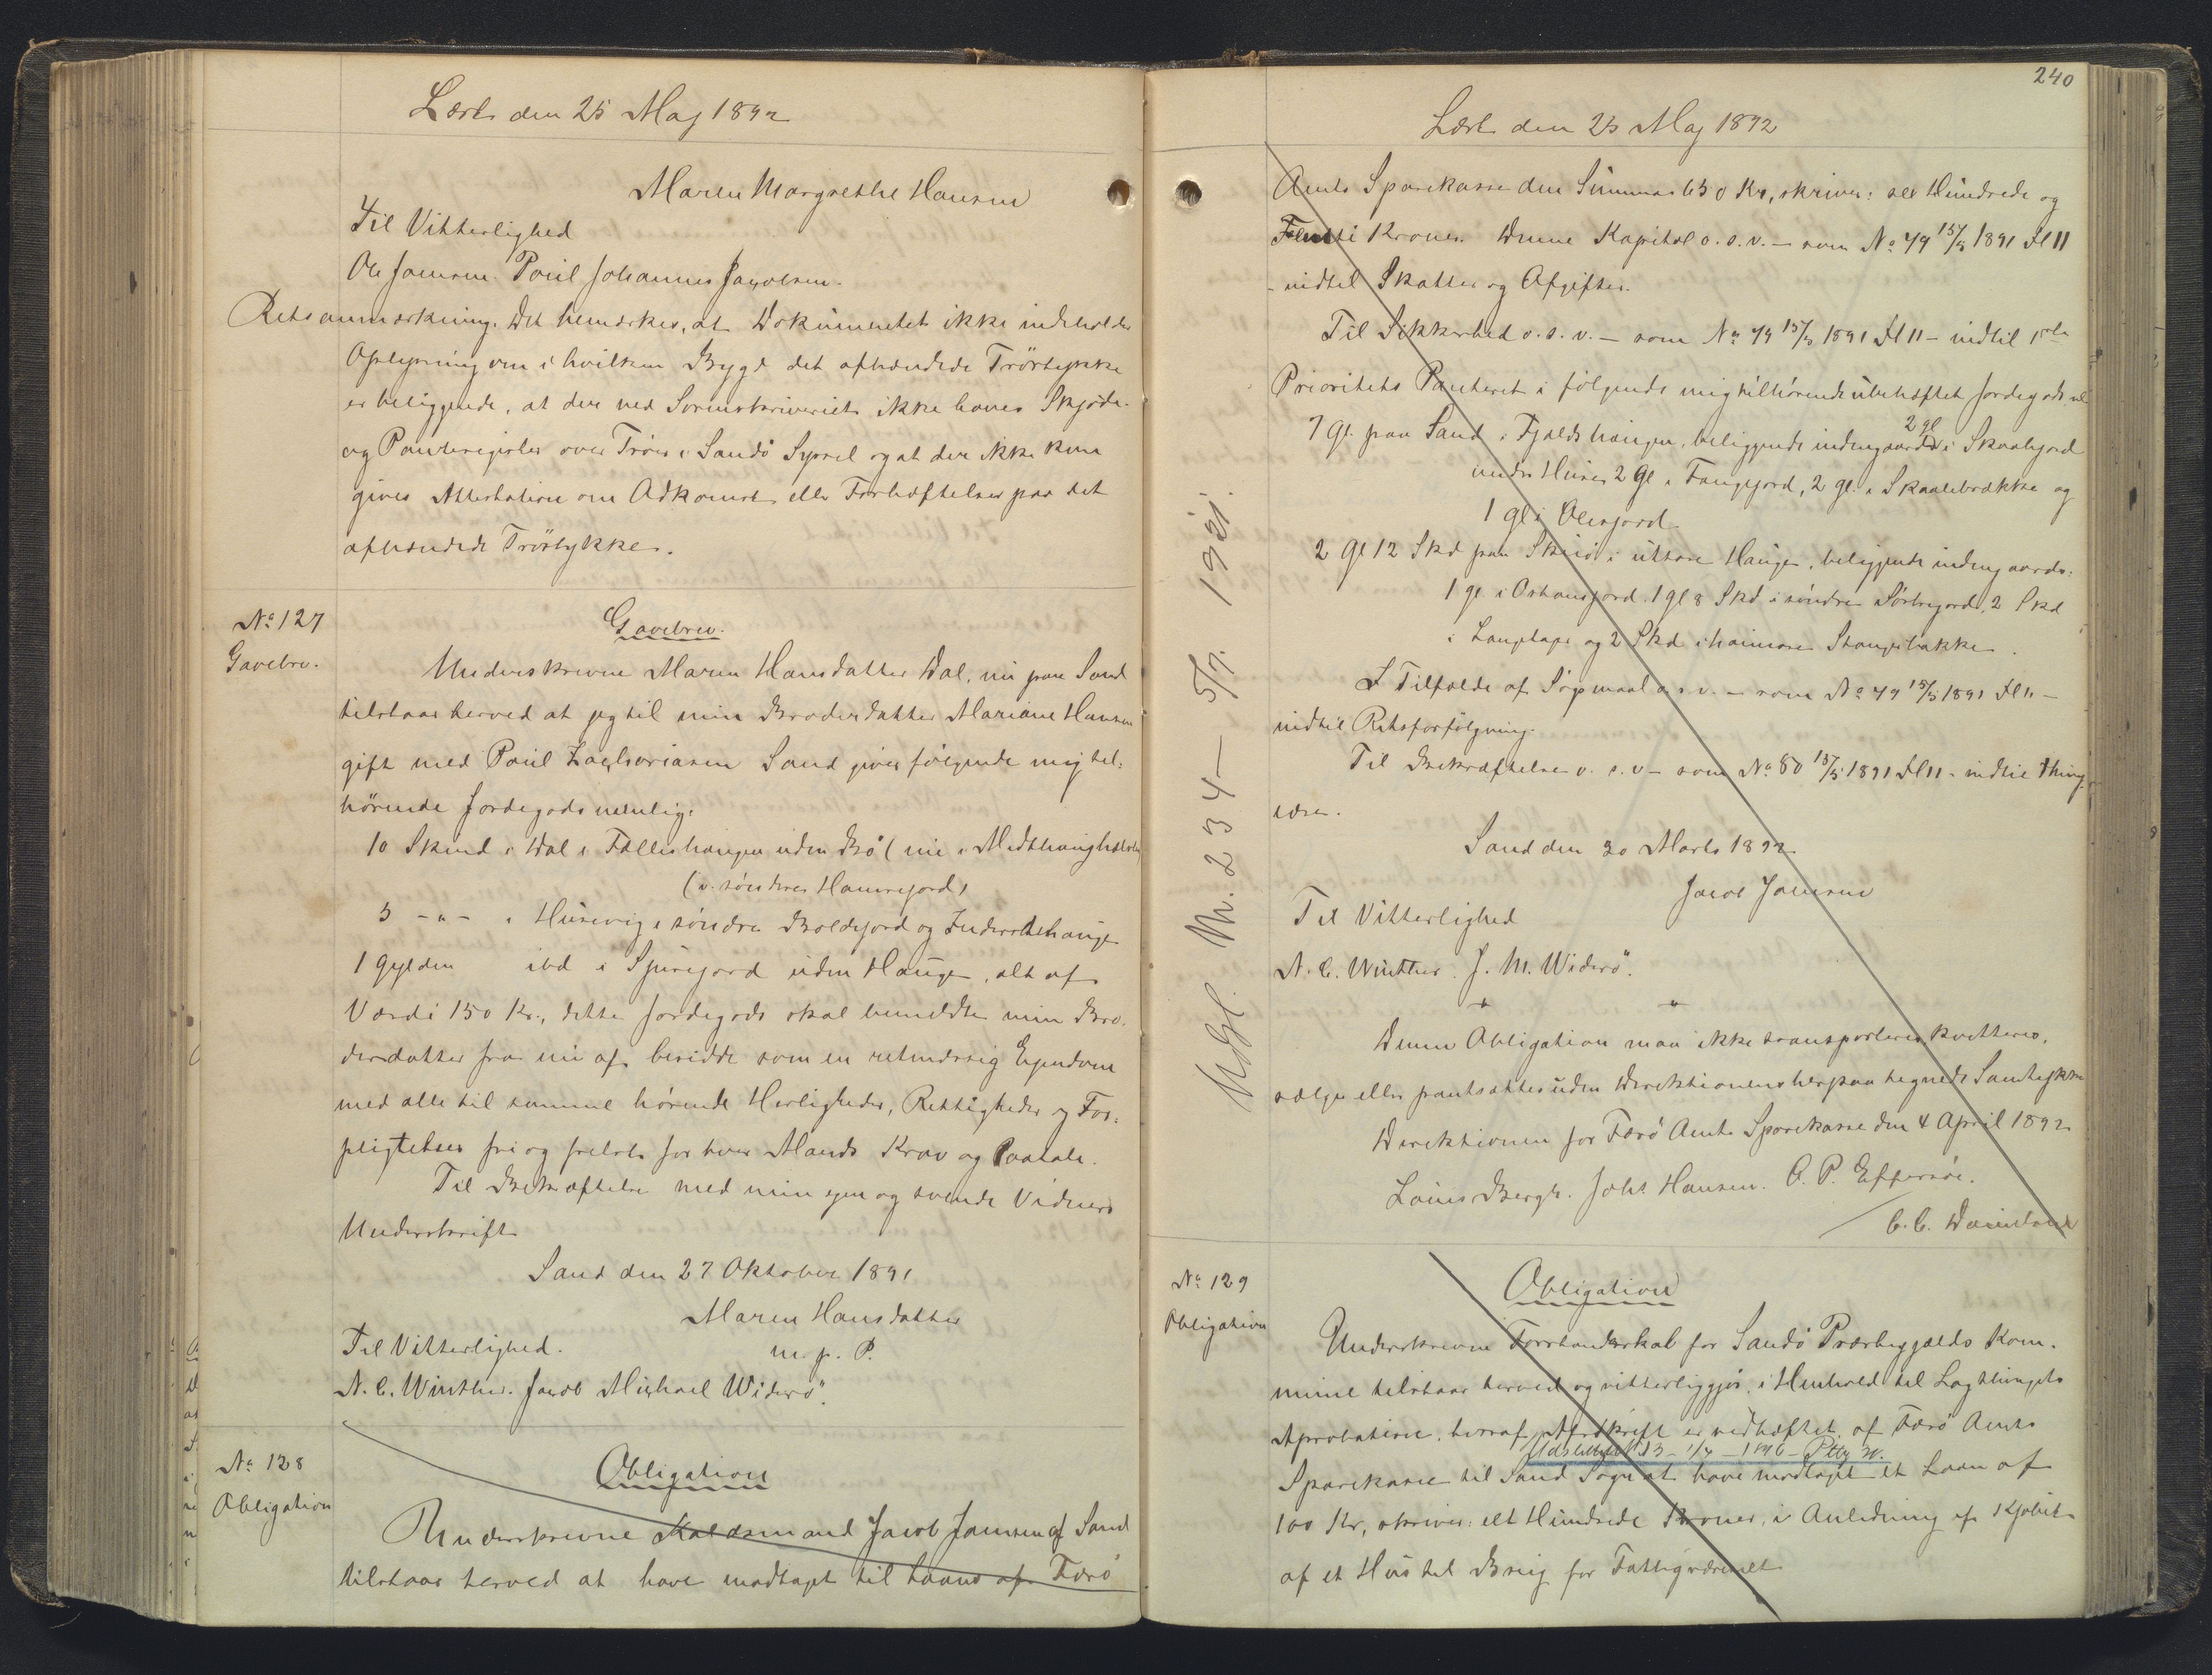 Læst den 25 Maj 1892
Maren Margrethe Hansen
Til Vitterlighed
Ole Joensen. Poul Johannes Jacobsen.
Retsanmærkning. Det bemærkes, at Dokumentet ikke indeholder
Oplysning om i hvilken Bygd det afhændede Trøstykke
er beliggende, at der ved Sorenskriveriet ikke haves Skjøde-
og Panteregister over Trøer i Sandø Syssel og at der ikke kan
gives Attestation om Adkomst eller Forhæftelser paa det
afhændede Trøstykke.
No 127
Gavebrev.
Gavebrev.
Underskrevne Maren Hansdatter Dal, nu paa Sand
tilstaar herved at jeg til min Broderdatter Mariane Hansen
gift med Poul Zachariasen Sand giver følgende mig til-
hørende Jordegods nemlig:
10 Skind i Dal i Fælleshaugen uden Bø (nu i Midthaughølen
(i søndere Hamregjord)
3 -"- i Husevig i søndre Boldegjord og Inderstehauge
1 Gylden ibd i Spuregjord uden Hauge, alt af
Værdi 150 Kr., dette Jordegods skal bemeldte min Bro-
derdatter fra nu af besidde som en retmæssig Ejendom
med alle til samme hørende Herligheder, Rettigheder og For-
pligtelser fri og frelst for hver Mands Krav og Paatale.
Til Bekræftelse med min egen og tvende Vidners
Underskrift
Sand den 27 Oktober 1891
Maren Hansdatter
Til Vitterlighed. m. p. P.
N. C. Winther. Jacob Michael Widerø.
No 128
Obligation
Obligation
Underskrevne Kaldsmand Jacob Joensen af Sand
tilstaar herved at have modtaget til Laans af Færø
240
Læst den 25 Maj 1892
Amts Sparekasse den Summa 650 Kr, skriver: sex Hundrede og
Femti Kroner. Denne Kapital o. s. v. — som No 79 15/5 1891 Fl 11
- indtil Skatter og Afgifter.
Til Sikkerhed o. s. v. — som No 79 15/5 1891 Fl 11 - indtil 1ste
Prioritets Panteret i følgende mig tilhørende ubehæftet Jordegods nl
7 Gl. paa Sand i Fjeldshaugen, beliggende indengaards 2 gl i Skaalegjord
under Huse, 2 Gl i Faugegjord, 2 gl. i Skaalebrække og
1 Gl i Olesgjord.
2 Gl 12 Skd paa Skuø i uttare Hauge, beliggende indengaards:
1 gl. i Ostansgjord. 1 gl 8 Skd i søndre Sørtregjord, 2 Skd
i Langtage og 2 Skd i haimare Stangebakke.
I Tilfælde af Søgsmaal o. s. v. — som No 79 15/5 1891 Fl 11 —
indtil Retsforfølgning.
Til Bekræftelse o. s. v — som No 80 15/5 1891 Fl 11 - indtil Thing-
læses.
Sand den 30 Marts 1892
Jacob Joensen
Til Vitterlighed
N. C. Winther. J. M. Widerø.
Denne Obligation maa ikke transporteres, kvitteres,
sælges eller pantsættes uden Direktionens herpaa tegnede Samtykke
Direktionen for Færø Amts Sparekasse den 4 April 1892
Louis Bergh. Johs Hansen. O. P. Effersøe.
C. C. Danielsen
Udsl. Nr. 234 — 5/7. 1921.
No 129
Obligation
Obligation
Underskrevne Forstanderskab for Sandø Præstegjælds Kom-
mune tilstaar herved og vitterliggjør, i Henhold til Lagthingets
Aprobation, hvoraf Afskrift er vedhæftet, af Færø Amts
Sparekasse til Sand Sogn at have modtaget et Laan af
100 Kr, skriver: et Hundrede Kroner, i Anledning af Kjøbet
af et Hus til Brug for Fattigvæsenet